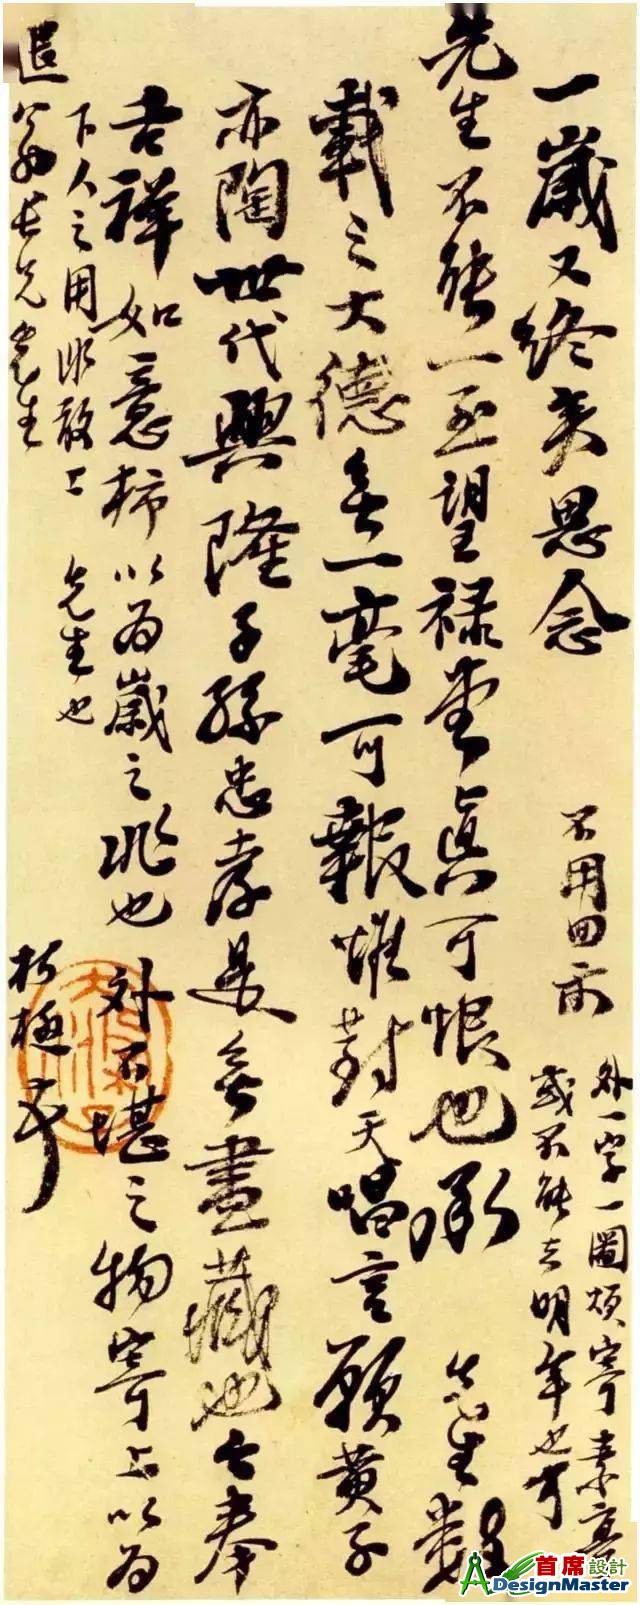 一歲又終矣思念
先生不能一面望祿堂真可恨也承　先生數
載之大德無一毫可報惟對天唱言願黃子
亦陶世代興隆子孫忠孝是無盡藏也今奉
吉祥如意柿以為歲之兆也外不堪之物寄上以為
下人之用非敢上　先生也
退翁長兄先生
朽極
不用回示
外一字一圖煩寄素亭
或不能去明年也可
首席設計
DesignMaster